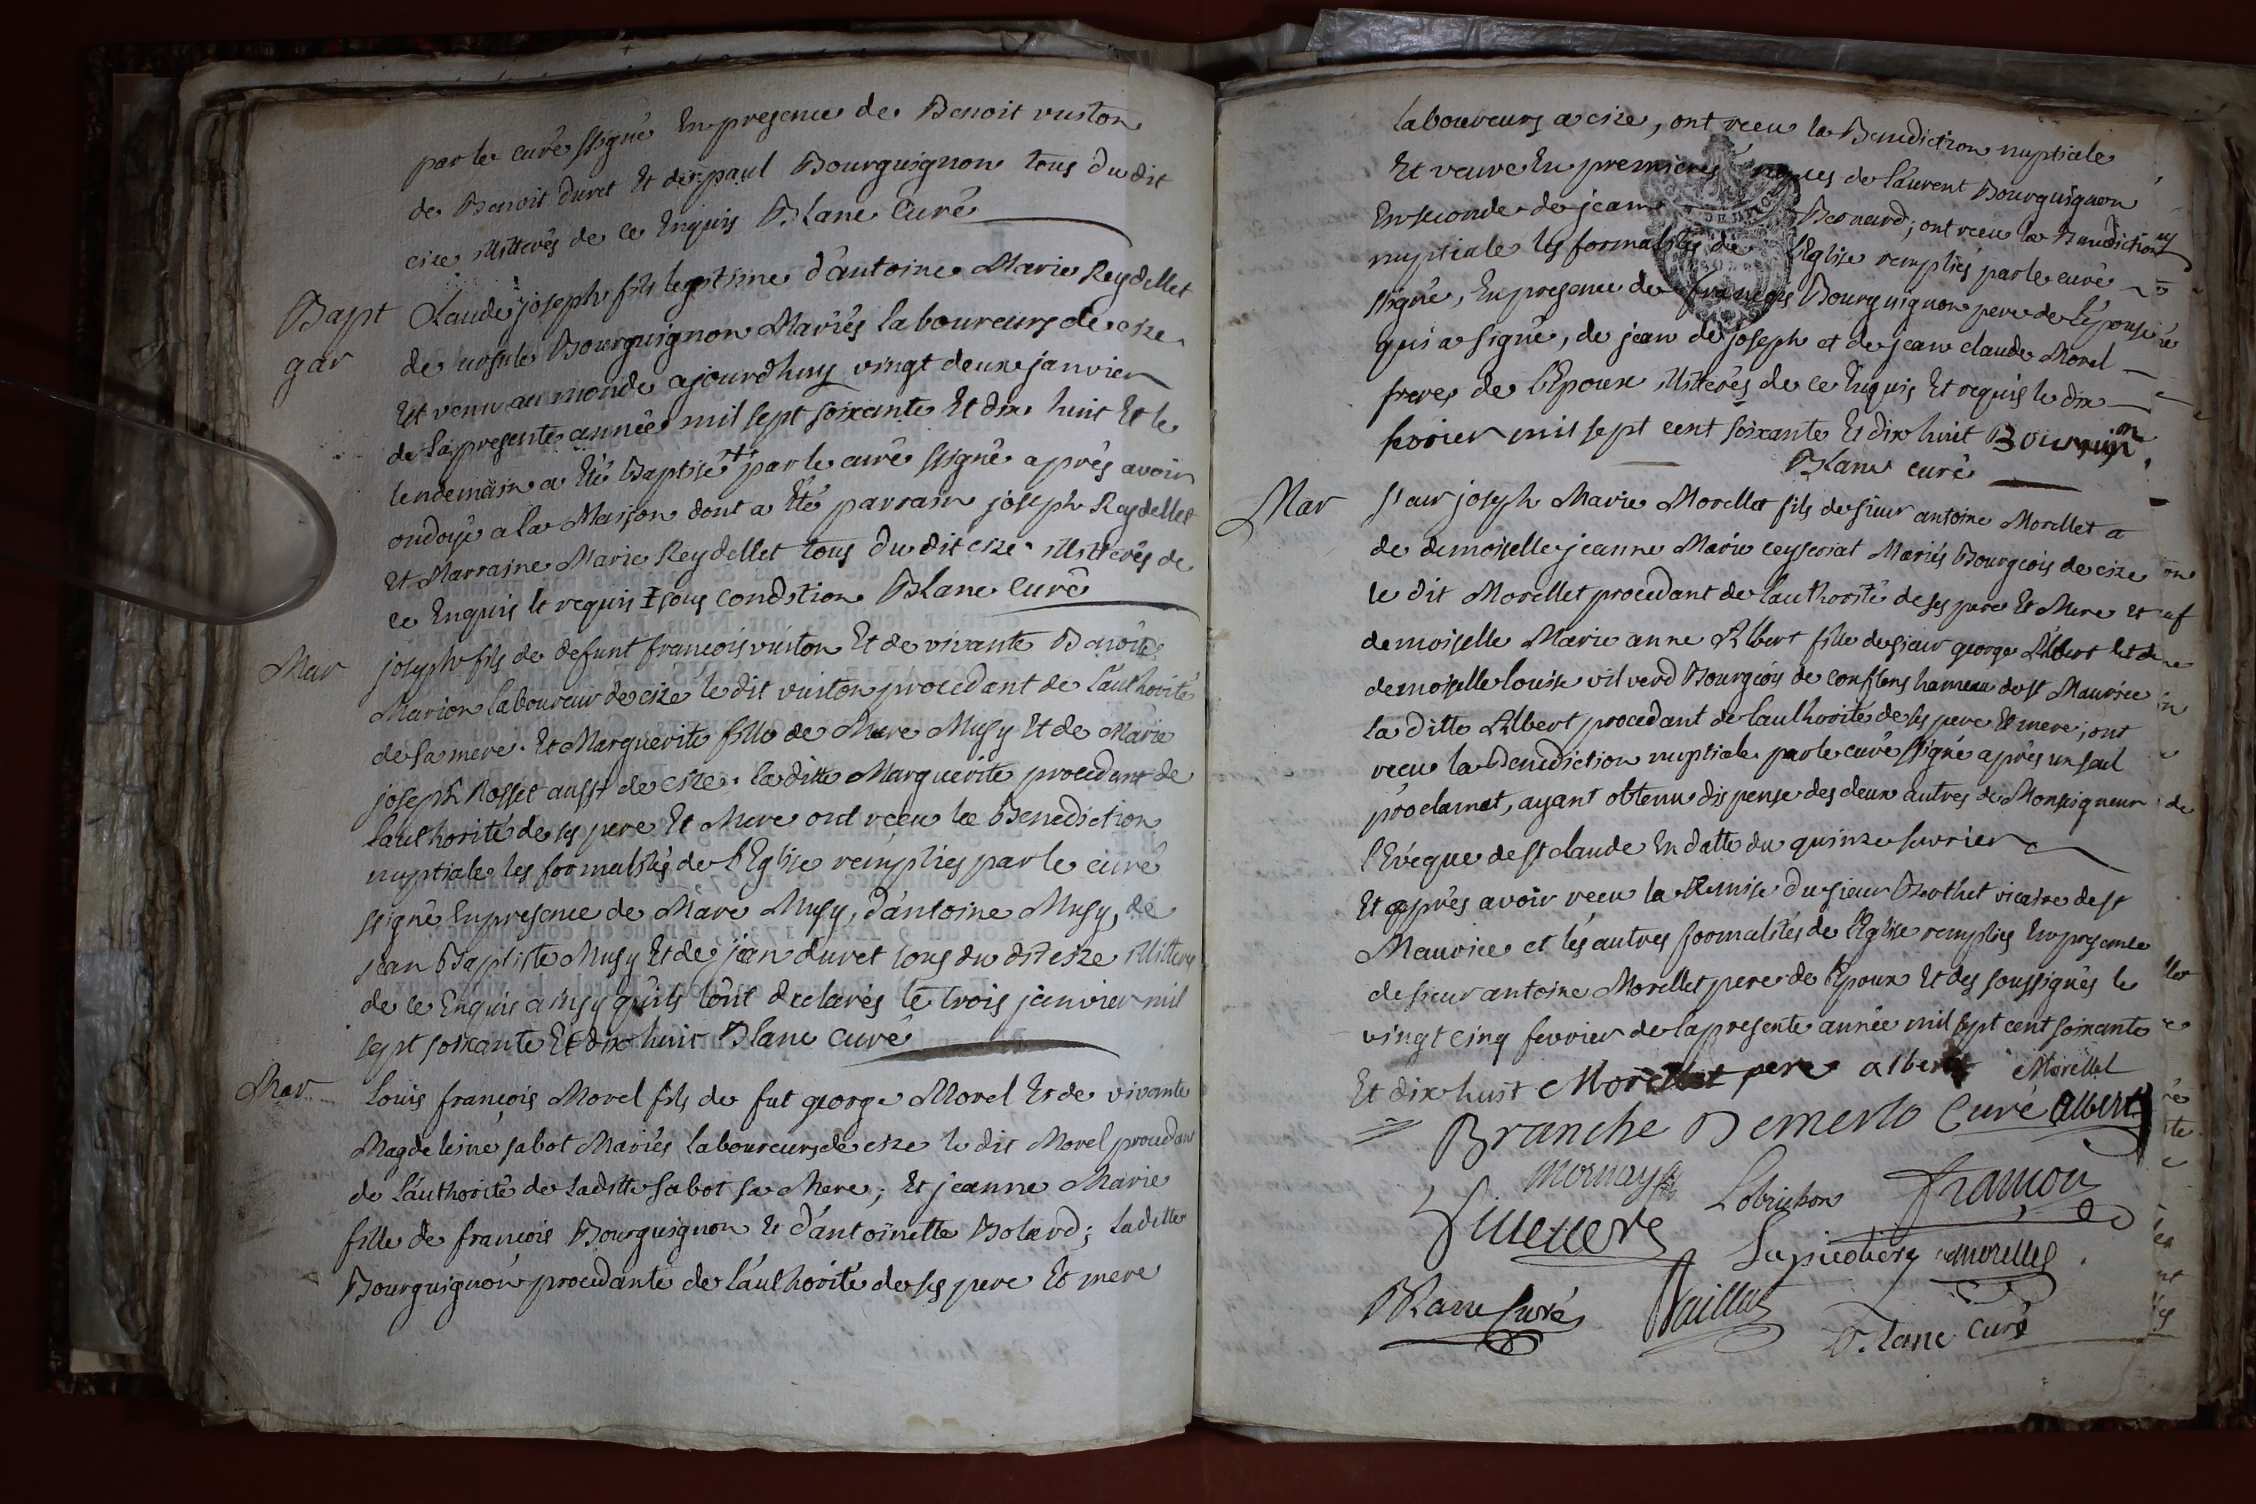 par le curé ssigné En presence de Benoit vuiton
de Benoit duret Et de paul Bourguignon tous du dit
cize illiterés de ce Enquis Blanc Curé
Bapt
gar
Claude joseph fils legitime d'antoine Marie Reydellet
de ursule Bourguignon Mariés laboureurs de cize
Est venu au monde ajourdhuy vingt deux janvier
de la presente année mil sept soixante Et dix huit Et le
lendemain a Eté Baptisé par le curé ssigné après avoir
ondoyé a la Maison dont a Eté parrain joseph Reydellet
Et Marraine Marie Reydellet tous du dit cize illiterés de
ce Enquis Et requis ‡ sous condition Blanc Curé
Mar
joseph fils de defunt francois vuiton Et de vivante Benoite
Marion laboureur de cize le dit vuiton procedant de l'authorité
de sa mere. Et Marguerite fille de Marc Musy Et de Marie
joseph Rosset aussi de cize. la ditte Marguerite procedant de
l'authorité de ses pere Et Mere ont receu la Benediction
nuptiale les formalités de l'Eglise remplies par le curé
ssigné En presence de Marc Musy, d'antoine Musy, de
jean Baptiste Musy Et de jean duret tous du dit cize illiterés
de ce Enquis ainsy qu'ils l'ont declarés le trois janvier mil
sept soixante Et dix huit Blanc Curé
Mar
Louis françois Morel fils de fut george Morel Et de vivante
Magdeleine sabot Mariés laboureurs de cize le dit Morel procedant
de l'authorité de ladite sabot sa Mere; Et jeanne Marie
fille de françois Bourguignon Et d'antoinette Bolard; la ditte
Bourguignon procedante de l'authorité de ses pere Et mere
laboureurs a cize, ont receu la Benediction nuptiale
Et veuve En premieres noces de Laurent Bourguignon
En seconde de jean Besnard; ont receu la Benediction
nuptiale les formalités de l'Eglise remplies par le curé
ssigné, En presence de françois Bourguignon pere de l'épouse
qui a signé, de jean de joseph et de jean claude Morel
freres de l'Epoux illiterés de ce Enquis Et requis le dix
fevrier mil sept cent soixante Et dix huit
Blanc curé
Mar
sieur joseph Marie Morellet fils de sieur antoine Morellet a
de demoiselle jeanne Marie ceyseriat Mariés Bourgeois de cize
le dit Morellet procedant de l'authorité de ses pere Et Mere et
demoiselle Marie anne Albert fille de sieur george Albert Et de
demoiselle louise vilverd Bourgeois de conflens hameau de st Maurice
la ditte Albert procedant de l'authorité de ses pere Et mere; ont
receu la Benediction nuptiale par le curé ssigné après un seul
proclamat, ayant obtenu dispense des deux autres de Monseigneur
l'Evêque de st claude En datte du quinze fevrier
Et après avoir receu la Remise du sieur Berthet vicaire de st
Maurice et les autres formalités de l'Eglise remplies En presence
de sieur antoine Morellet pere de l'Epoux Et des soussignés le
vingt cinq fevrier de la presente année mil sept cent soixante
Et dix huit Morellet pere albert Morellet
Branche Demerlo Curé Albert
Mornay
Lobrichon françon
Morellet
Blanc Curé Vaillat
Blanc Curé